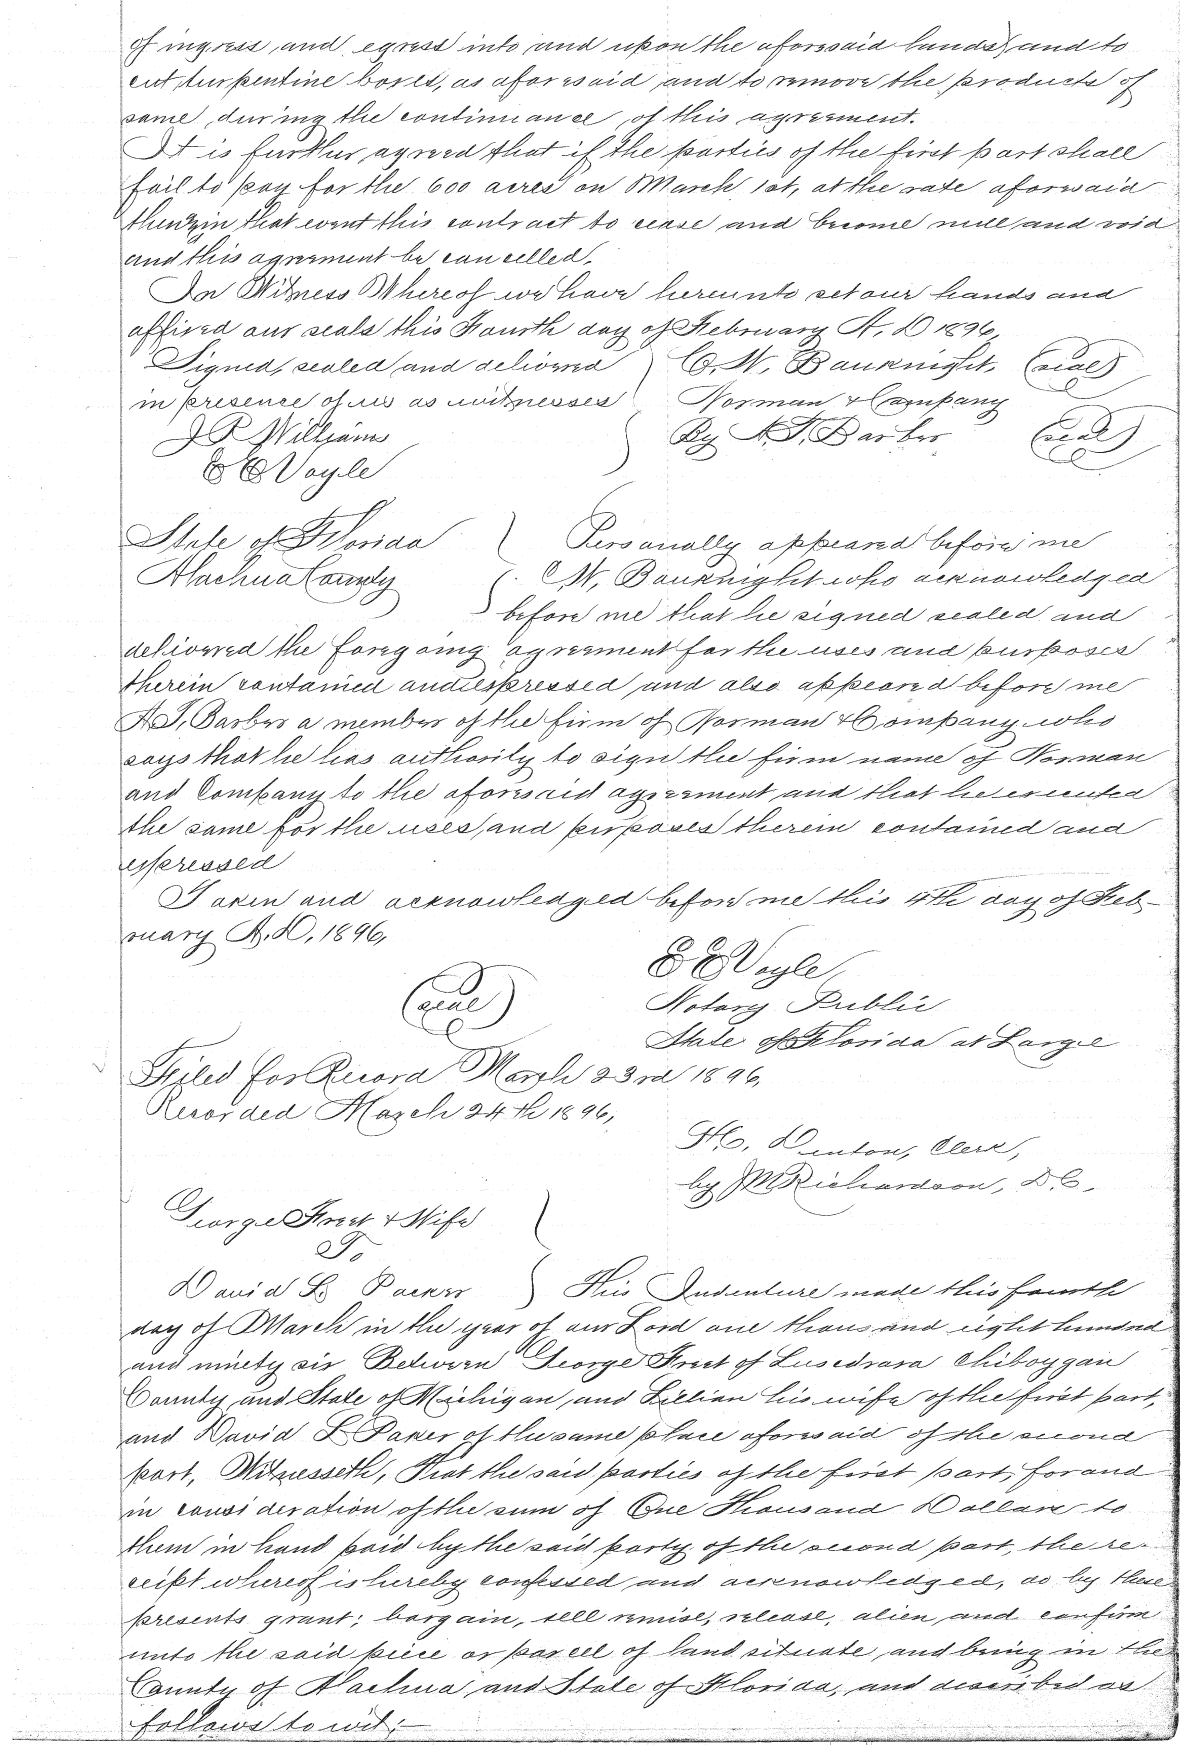 of ingress and egress into and upon the aforesaid lands, and to
cut turpentine boxes, as aforesaid and to remove the products of
same, during the continuance of this agreement.
It is further agreed that if the parties of the first part shall
fail to pay for the 600 acres on March 1st, at the rate aforesaid
then in that event this contract to cease and become null and void
and this agreement be cancelled.
In Witness Whereof we have hereunto set our hands and
affixed our seals this Fourth day of February A. D 1896,
Signed, sealed and delivered ) C. W. Bauknight. (seal)
in presence of us as witnesses Norman & Company
J P Williams ) By A. J. Barber (seal)
E E Voyle
State of Florida ) Personally appeared before me
Alachua County C W. Bauknight who acknowledged
before me that he signed sealed and
delivered the foregoing agreement for the uses and purposes
therein contained and expressed and also appeared before me
A. J. Barber a member of the firm of Norman & Company who
says that he has authority to sign the firm name of Norman
and Company to the aforesaid agreement and that he executed
the same for the uses and purposes therein contained and
expressed
Taken and acknowledged before me this 4th day of Feb-
ruary A. D. 1896,
E E Voyle,
(seal) Notary Public
State of Florida at Large
Filed for Record March 23rd 1896,
Recorded March 24th 1896,
H C. Denton, Clerk,
by J M Richardson, D. C.
George Frest & Wife )
To
David L Parker ) This Indenture made this fourth
day of March in the year of our Lord one thousand eight hundred
and ninety six Between George Frest of Chiboygan
County and State of Michigan, and Lillian his wife of the first part,
and David L Parker of the same place aforesaid of the second
part, Witnesseth, That the said parties of the first part, for and
in consideration of the sum of One Thousand Dollars to
them in hand paid by the said party of the second part, the re-
ceipt whereof is hereby confessed and acknowledged, do by these
presents grant, bargain, sell remise, release, alien and confirm
unto the said piece or parcell of land situate and being in the
County of Alachua and State of Florida, and described as
follows to wit:—